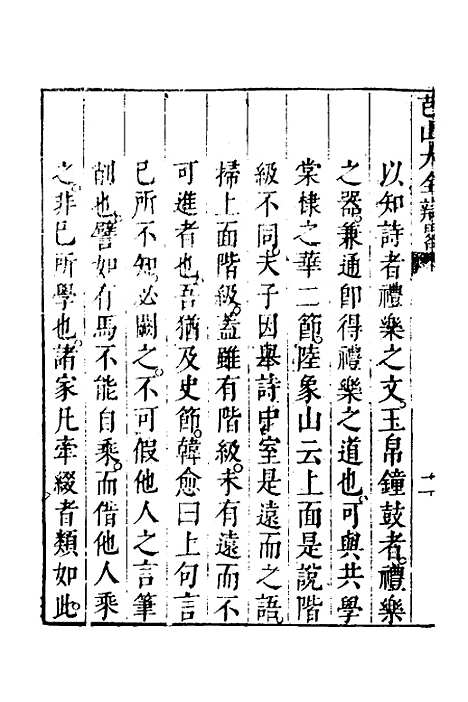 以知詩者禮樂之文玉帛鐘鼓者禮樂
之器兼通卽得禮樂之道也可與共學
棠棣之華二節陸象山云上面是說階
級不同夫子因舉詩中室是遠而之語
掃上面階級蓋雖有階級未有遠而不
可進者也吾猶及史節韓愈曰上句言
己所不知必闕之不可假他人之言筆
削也譬如有馬不能自乘而借他人乘
之非己所學也諸家凡牽綴者類如此